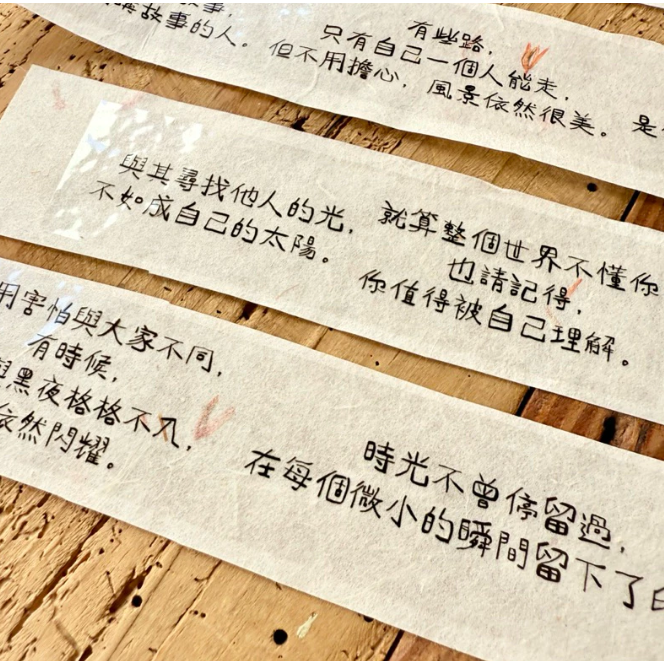 故事的人。
有些路，
只有自己一個人能走，
但不用擔心，風景依然很美。
是
與其尋找他人的光，
不如成自己的太陽。
就算整個世界不懂你
也請記得，
你值得被自己理解。
用害怕與大家不同，
有時候，
黑夜格格不入，
依然閃耀。
時光不曾停留過，
在每個微小的瞬間留下了